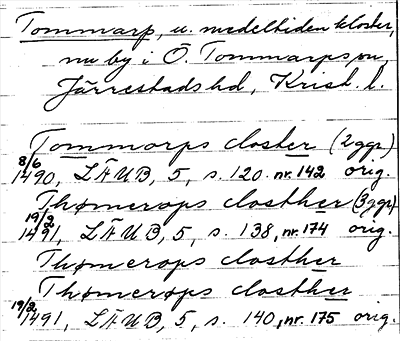 Tommarp, u. medeltiden kloster,
nu by i Ö. Tommarps sn,
Järrestads hd, Krist. l.
Tommarps closter (2 ggr)
8/6
1490, LÄUB, 5, s. 120. nr. 142 orig.
Thømerops closther (3 ggr)
19/2
1491, LÄUB, 5, s. 138, nr. 174 orig.
Thømerops closther
Thømerops closther
19/2
1491, LÄUB, 5, s. 140, nr. 175 orig.